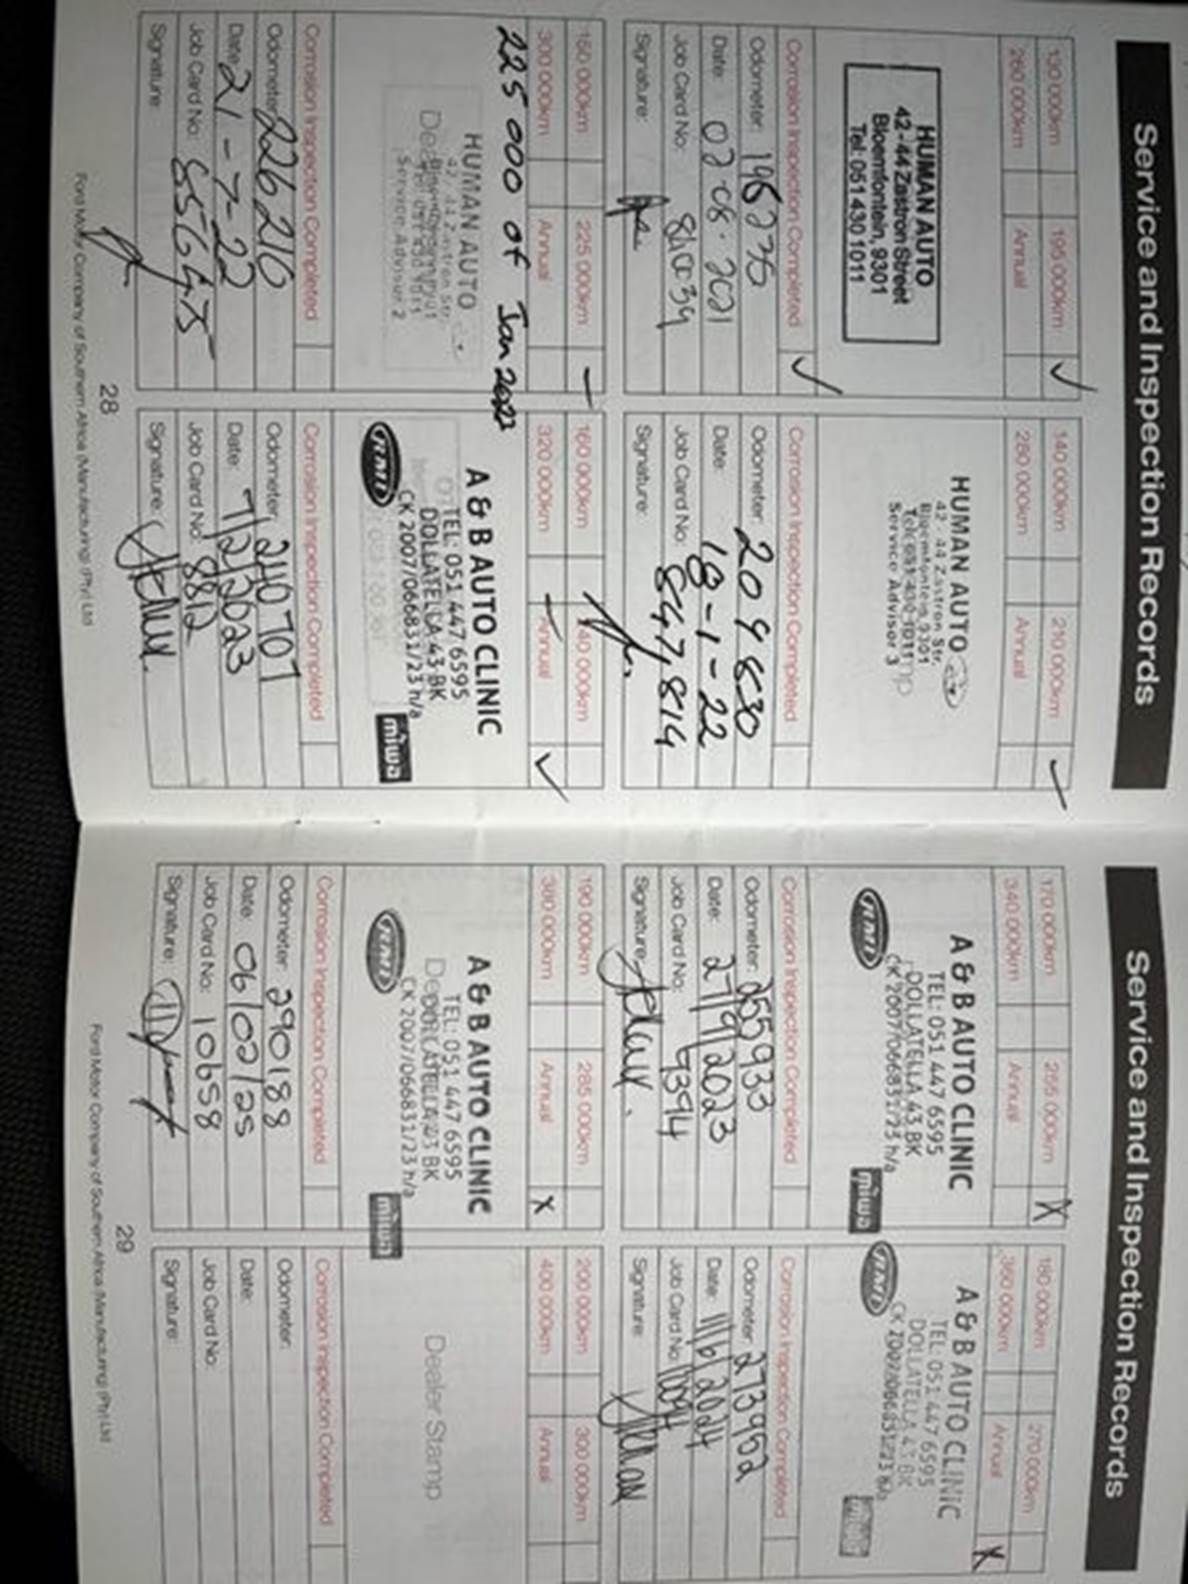 Service and Inspection Records
130 000km 195 000km ✓
260 000km Annual
HUMAN AUTO
42-44 Zastron Street
Bloemfontein, 9301
Tel: 051 430 1011
Corrosion Inspection Completed ✓
Odometer: 195275
Date: 02.08.2021
Job Card No:
Signature:
140 000km 210 000km ✓
280 000km Annual
HUMAN AUTO
42 - 44 Zastron Str.
Bloemfontein 9301
Tel: 051 430 1011
Service Advisor 3
Corrosion Inspection Completed
Odometer: 209830
Date: 18-1-22
Job Card No: 547,814
Signature:
150 000km 225 000km
300 000km Annual
225 000 of Jan 2022
HUMAN AUTO
42 - 44 Zastron Str.
Service Advisor 2
Corrosion Inspection Completed
Odometer: 226210
Date: 21-7-22
Job Card No: 556475
Signature:
160 000km 240 000km
320 000km Annual ✓
A & B AUTO CLINIC
TEL: 051 447 6595
DOLLATELLA 43 BK
CK 2007/066831/23 h/a
RMI
miwa
Corrosion Inspection Completed
Odometer: 240707
Date: 7/2/2023
Job Card No: 8812
Signature:
28
Ford Motor Company of Southern Africa (Manufacturing) (Pty) Ltd
Service and Inspection Records
170 000km 255 000km X
340 000km Annual
A & B AUTO CLINIC
TEL: 051 447 6595
DOLLATELLA 43 BK
CK 2007/066831/23 h/a
RMI
miwa
Corrosion Inspection Completed
Odometer: 255933
Date: 27/9/2023
Job Card No: 9394
Signature:
180 000km 270 000km
360 000km Annual X
A & B AUTO CLINIC
TEL: 051 447 6595
DOLLATELLA 43 BK
CK 2007/066831/23 h/a
RMI
miwa
Corrosion Inspection Completed
Odometer: 273952
Date: 11/6/2024
Job Card No: 10094
Signature:
190 000km 285 000km
380 000km Annual X
A & B AUTO CLINIC
TEL: 051 447 6595
DOLLATELLA 43 BK
CK 2007/066831/23 h/a
RMI
miwa
Corrosion Inspection Completed
Odometer: 290188
Date: 06/02/25
Job Card No: 10658
Signature:
200 000km 300 000km
400 000km Annual
Dealer Stamp
Corrosion Inspection Completed
Odometer:
Date:
Job Card No:
Signature:
29
Ford Motor Company of Southern Africa (Manufacturing) (Pty) Ltd